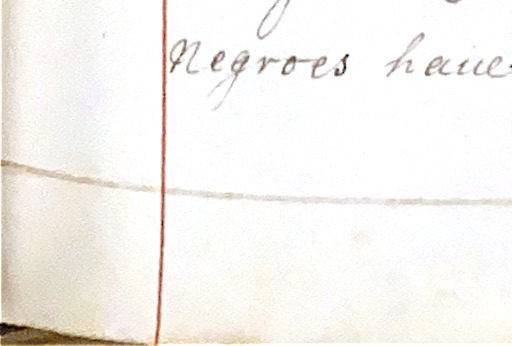 Negroes have